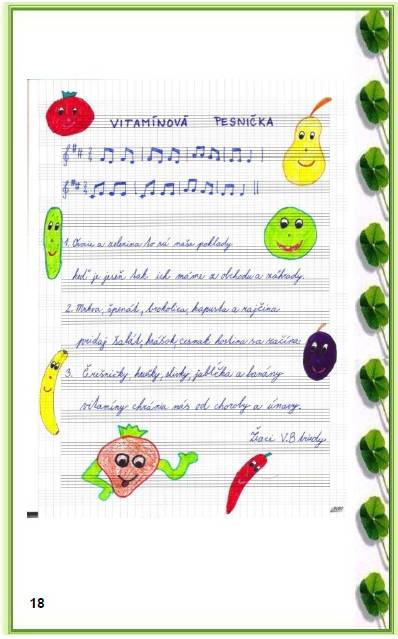 VITAMÍNOVÁ PESNIČKA
1. Ovocie a zelenina to sú naše poklady
keď je jeseň tak ich máme z obchodu a záhrady.
2. Mrkva, špenát, brokolica, kapusta a rajčina
pridaj šalát, hrášok cesnak hostina sa začína
3. Čerešničky, hrušky, slivky, jabĺčka a banány
vitamíny chránia nás od choroby a únavy.
Žiaci V.B triedy
18